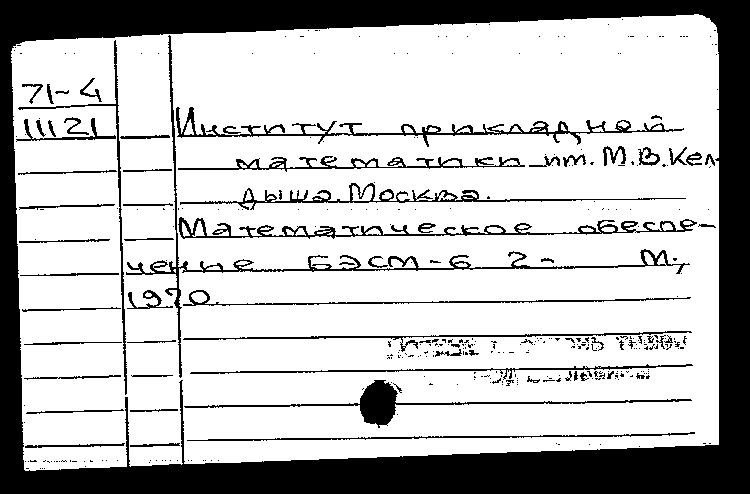 71-4
11121
Институт прикладной
математики им. М.В.Кел-
дыша. Москва.
Математическое обеспе-
чение БЭСМ-6 2- М.,
1970.